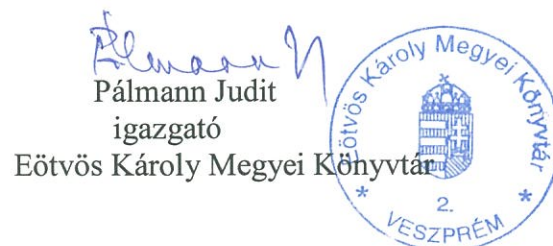 Pálmann J
Pálmann Judit
igazgató
Eötvös Károly Megyei Könyvtár
Eötvös Károly Megyei Könyvtár
* 2. *
VESZPRÉM